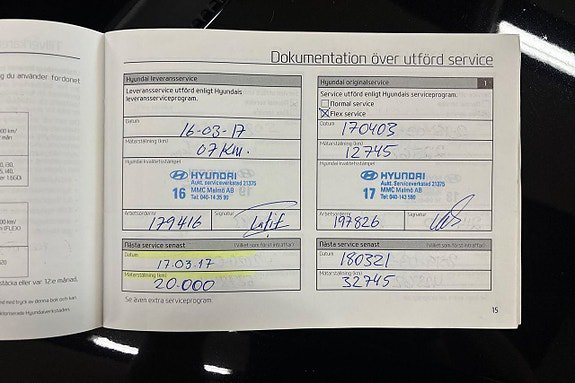 Tillverkare
g du använder fordonet
Dokumentation över utförd service
Hyundai leveransservice
Leveransservice utförd enligt Hyundais
leveransserviceprogram.
Datum
16-03-17
Mätarställning (km)
07 Km.
Hyundai kvalitetsstämpel
HYUNDAI
Aukt. Serviceverkstad 21375
16 MMC Malmö AB
Tel: 040-14 35 90
Arbetsorder nr
Signatur
179416
Nästa service senast
(Vilket som först inträffar)
Datum
17.03.17
Mätarställning (km)
20.000
Se även extra serviceprogram.
Hyundai originalservice
1
Service utförd enligt Hyundais serviceprogram.
Normal service
Flex service
Datum
170403
Mätarställning (km)
12745
Hyundai kvalitetsstämpel
HYUNDAI
Aukt. Serviceverkstad 21375
17 MMC Malmö AB
Tel: 040-143 590
Arbetsorder nr
Signatur
197826
Nästa service senast
(Vilket som först inträffar)
Datum
180321
Mätarställning (km)
32745
15